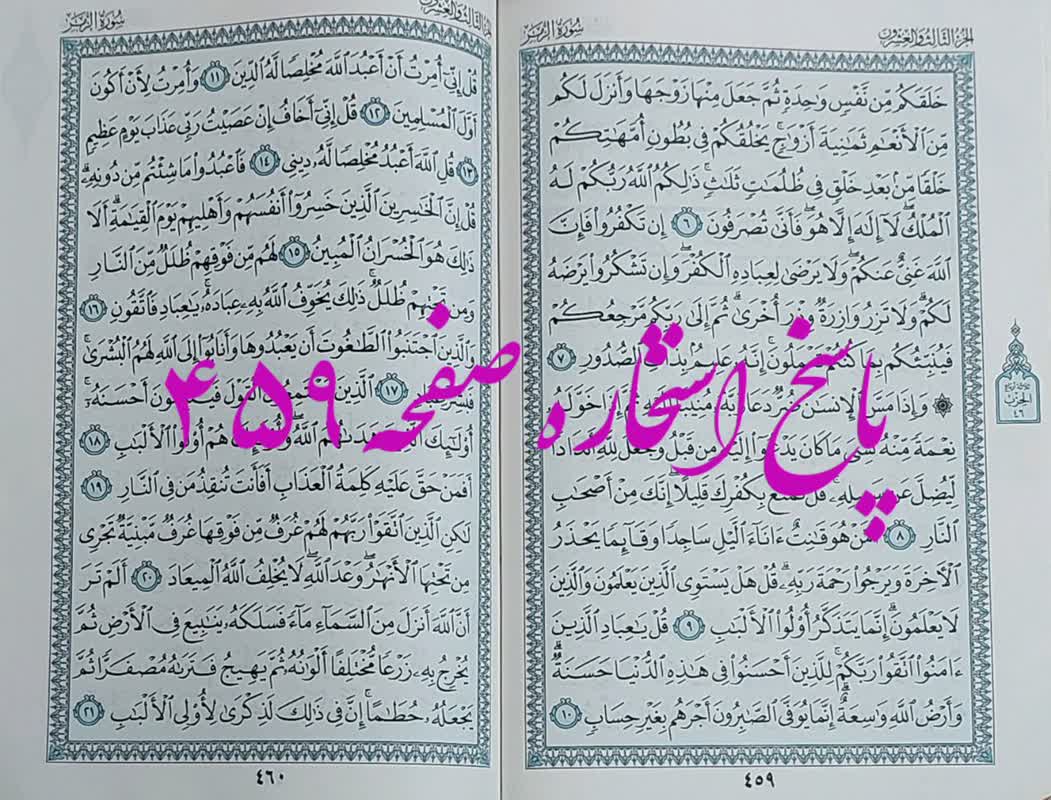 الجزء الثالث والعشرون
سورة الزمر
خَلَقَكُم مِّن نَّفْسٍ وَٰحِدَةٍ ثُمَّ جَعَلَ مِنْهَا زَوْجَهَا وَأَنزَلَ لَكُم
مِّنَ ٱلْأَنْعَٰمِ ثَمَٰنِيَةَ أَزْوَٰجٍ ۚ يَخْلُقُكُمْ فِى بُطُونِ أُمَّهَٰتِكُمْ
خَلْقًا مِّنۢ بَعْدِ خَلْقٍ فِى ظُلُمَٰتٍ ثَلَٰثٍ ۚ ذَٰلِكُمُ ٱللَّهُ رَبُّكُمْ لَهُ
ٱلْمُلْكُ ۖ لَآ إِلَٰهَ إِلَّا هُوَ ۖ فَأَنَّىٰ تُصْرَفُونَ ٦ إِن تَكْفُرُوا۟ فَإِنَّ
ٱللَّهَ غَنِىٌّ عَنكُمْ ۖ وَلَا يَرْضَىٰ لِعِبَادِهِ ٱلْكُفْرَ ۖ وَإِن تَشْكُرُوا۟ يَرْضَهُ
لَكُمْ ۗ وَلَا تَزِرُ وَازِرَةٌ وِزْرَ أُخْرَىٰ ۗ ثُمَّ إِلَىٰ رَبِّكُم مَّرْجِعُكُمْ
فَيُنَبِّئُكُم بِمَا كُنتُمْ تَعْمَلُونَ ۚ إِنَّهُۥ عَلِيمٌۢ بِذَاتِ ٱلصُّدُورِ ٧
وَإِذَا مَسَّ ٱلْإِنسَٰنَ ضُرٌّ دَعَا رَبَّهُۥ مُنِيبًا إِلَيْهِ ثُمَّ إِذَا خَوَّلَهُۥ
نِعْمَةً مِّنْهُ نَسِىَ مَا كَانَ يَدْعُوٓا۟ إِلَيْهِ مِن قَبْلُ وَجَعَلَ لِلَّهِ أَندَادًا
لِّيُضِلَّ عَن سَبِيلِهِۦ ۚ قُلْ تَمَتَّعْ بِكُفْرِكَ قَلِيلًا ۖ إِنَّكَ مِنْ أَصْحَٰبِ
ٱلنَّارِ ٨ أَمَّنْ هُوَ قَٰنِتٌ ءَانَآءَ ٱلَّيْلِ سَاجِدًا وَقَآئِمًا يَحْذَرُ
ٱلْءَاخِرَةَ وَيَرْجُوا۟ رَحْمَةَ رَبِّهِۦ ۗ قُلْ هَلْ يَسْتَوِى ٱلَّذِينَ يَعْلَمُونَ وَٱلَّذِينَ
لَا يَعْلَمُونَ ۗ إِنَّمَا يَتَذَكَّرُ أُو۟لُوا۟ ٱلْأَلْبَٰبِ ٩ قُلْ يَٰعِبَادِ ٱلَّذِينَ
ءَامَنُوا۟ ٱتَّقُوا۟ رَبَّكُمْ ۚ لِلَّذِينَ أَحْسَنُوا۟ فِى هَٰذِهِ ٱلدُّنْيَا حَسَنَةٌ ۗ
وَأَرْضُ ٱللَّهِ وَٰسِعَةٌ ۗ إِنَّمَا يُوَفَّى ٱلصَّٰبِرُونَ أَجْرَهُم بِغَيْرِ حِسَابٍ ١٠
٤٥٩
الحزب
٤٦
الجزء الثالث والعشرون
سورة الزمر
قُلْ إِنِّىٓ أُمِرْتُ أَنْ أَعْبُدَ ٱللَّهَ مُخْلِصًا لَّهُ ٱلدِّينَ ١١ وَأُمِرْتُ لِأَنْ أَكُونَ
أَوَّلَ ٱلْمُسْلِمِينَ ١٢ قُلْ إِنِّىٓ أَخَافُ إِنْ عَصَيْتُ رَبِّى عَذَابَ يَوْمٍ عَظِيمٍ
١٣ قُلِ ٱللَّهَ أَعْبُدُ مُخْلِصًا لَّهُۥ دِينِى ١٤ فَٱعْبُدُوا۟ مَا شِئْتُم مِّن دُونِهِۦ ۗ
قُلْ إِنَّ ٱلْخَٰسِرِينَ ٱلَّذِينَ خَسِرُوٓا۟ أَنفُسَهُمْ وَأَهْلِيهِمْ يَوْمَ ٱلْقِيَٰمَةِ ۗ أَلَا
ذَٰلِكَ هُوَ ٱلْخُسْرَانُ ٱلْمُبِينُ ١٥ لَهُم مِّن فَوْقِهِمْ ظُلَلٌ مِّنَ ٱلنَّارِ
وَمِن تَحْتِهِمْ ظُلَلٌ ۚ ذَٰلِكَ يُخَوِّفُ ٱللَّهُ بِهِۦ عِبَادَهُۥ ۚ يَٰعِبَادِ فَٱتَّقُونِ ١٦
وَٱلَّذِينَ ٱجْتَنَبُوا۟ ٱلطَّٰغُوتَ أَن يَعْبُدُوهَا وَأَنَابُوٓا۟ إِلَى ٱللَّهِ لَهُمُ ٱلْبُشْرَىٰ ۚ
فَبَشِّرْ عِبَادِ ١٧ ٱلَّذِينَ يَسْتَمِعُونَ ٱلْقَوْلَ فَيَتَّبِعُونَ أَحْسَنَهُۥٓ ۚ
أُو۟لَٰٓئِكَ ٱلَّذِينَ هَدَىٰهُمُ ٱللَّهُ ۖ وَأُو۟لَٰٓئِكَ هُمْ أُو۟لُوا۟ ٱلْأَلْبَٰبِ ١٨
أَفَمَنْ حَقَّ عَلَيْهِ كَلِمَةُ ٱلْعَذَابِ أَفَأَنتَ تُنقِذُ مَن فِى ٱلنَّارِ ١٩
لَٰكِنِ ٱلَّذِينَ ٱتَّقَوْا۟ رَبَّهُمْ لَهُمْ غُرَفٌ مِّن فَوْقِهَا غُرَفٌ مَّبْنِيَّةٌ تَجْرِى
مِن تَحْتِهَا ٱلْأَنْهَٰرُ ۖ وَعْدَ ٱللَّهِ ۖ لَا يُخْلِفُ ٱللَّهُ ٱلْمِيعَادَ ٢٠ أَلَمْ تَرَ
أَنَّ ٱللَّهَ أَنزَلَ مِنَ ٱلسَّمَآءِ مَآءً فَسَلَكَهُۥ يَنَٰبِيعَ فِى ٱلْأَرْضِ ثُمَّ
يُخْرِجُ بِهِۦ زَرْعًا مُّخْتَلِفًا أَلْوَٰنُهُۥ ثُمَّ يَهِيجُ فَتَرَىٰهُ مُصْفَرًّا ثُمَّ
يَجْعَلُهُۥ حُطَٰمًا ۚ إِنَّ فِى ذَٰلِكَ لَذِكْرَىٰ لِأُو۟لِى ٱلْأَلْبَٰبِ ٢١
٤٦٠
پاسخ استخاره صفحه ۴۵۹